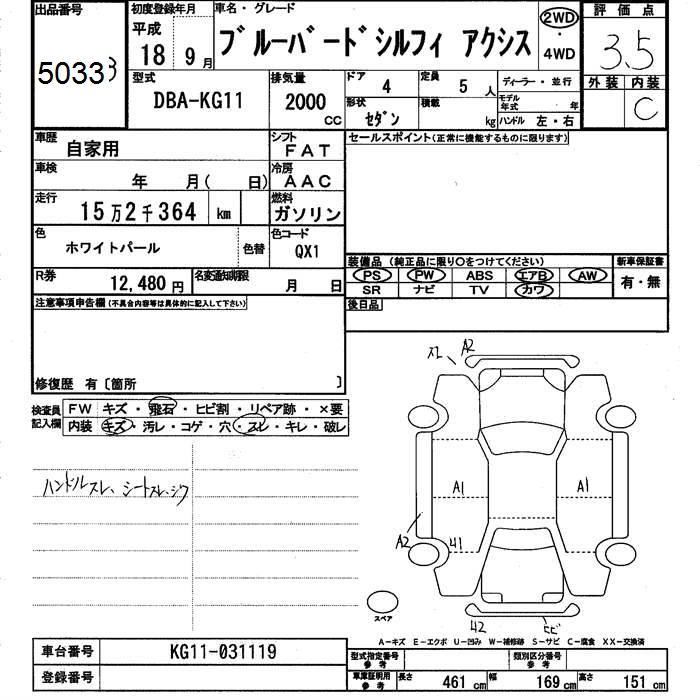 出品番号 初度登録年月 車名・グレード 評価点
50333 平成 18年 9月 ブルーバードシルフィ アクシス 2WD・4WD 3.5
外装 内装
C
型式 排気量 ドア 定員 ディーラー・並行
DBA-KG11 2000 CC 4 5人 モデル年式 年
形状 積載
セダン kg ハンドル 左・右
車歴 シフト セールスポイント(正常に機能するものに限ります)
自家用 FAT
車検 冷房
年 月( 日) AAC
走行 燃料
15万2千364 km ガソリン
色 色コード
ホワイトパール 色替 QX1
装備品(純正品に限り○をつけてください) 新車保証書
R券 名変通知期限 PS PW ABS エアB AW 有・無
12,480円 月 日 SR ナビ TV カワ
注意事項申告欄(不具合内容等は具体的に記入して下さい) 後日品
修復歴 有〔箇所 〕
スレ A2
検査員記入欄 FW キズ・飛石・ヒビ割・リペア跡・×要
内装 キズ・汚レ・コゲ・穴・スレ・キレ・破レ
ハンドルスレ、シートスレ、シワ
A1 A1
A2 41
スペア
42 ヒビ
A-キズ E-エクボ U-凹み W-補修跡 S-サビ C-腐食 XX-交換済
車台番号 KG11-031119 型式指定番号 参考 類別区分番号 参考
登録番号 車庫証明用 参考 長さ 461cm 幅 169cm 高さ 151cm